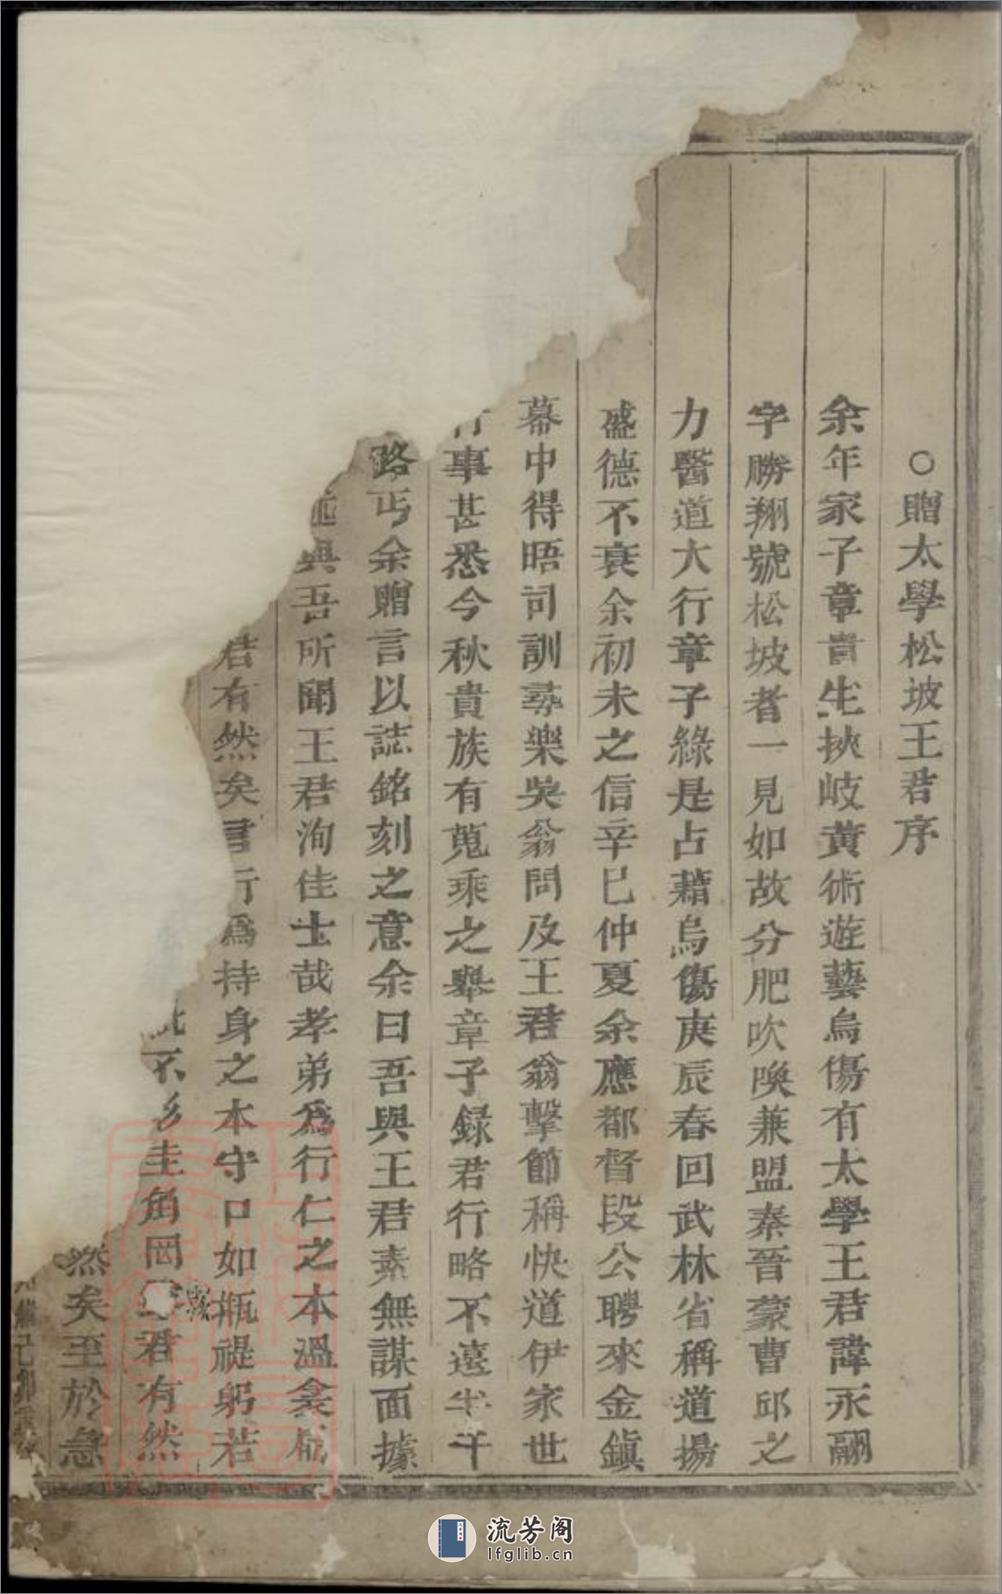 ○贈太學松坡王君序
余年家子章貴生挾岐黃術遊藝烏傷有太學王君諱永翮
字勝翔號松坡者一見如故分肥吹喚兼盟秦晉蒙曹邱之
力醫道大行章子綠是占藉烏傷庚辰春回武林省稱道揚
盛德不衰余初未之信辛巳仲夏余應都督段公聘來金鎭
幕中得晤司訓尋樂吳翁問及王君翁擊節稱快道伊家世
行事甚悉今秋貴族有蒐乘之舉章子録君行略不遠半千
路丐余贈言以誌銘刻之意余曰吾與王君素無謀面據
述與吾所聞王君洵佳士哉孝弟爲行仁之本溫
君有然矣言行爲持身之本守口如瓶禔躬若
此不 圭角 君有然
然矣至於急
流芳阁
lfglib.cn